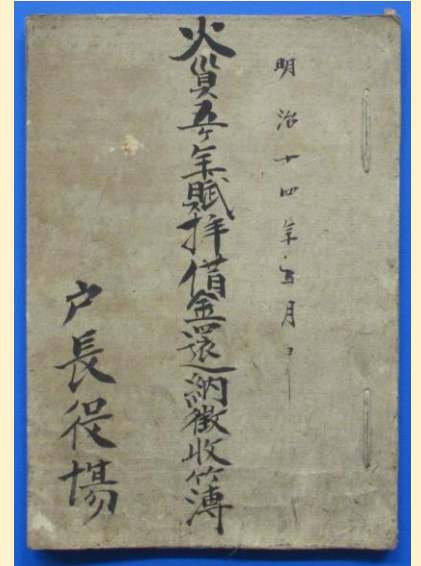 明治十四年五月ヨリ
火災五ヶ年賦拝借金還納徴收簿
戸長役場